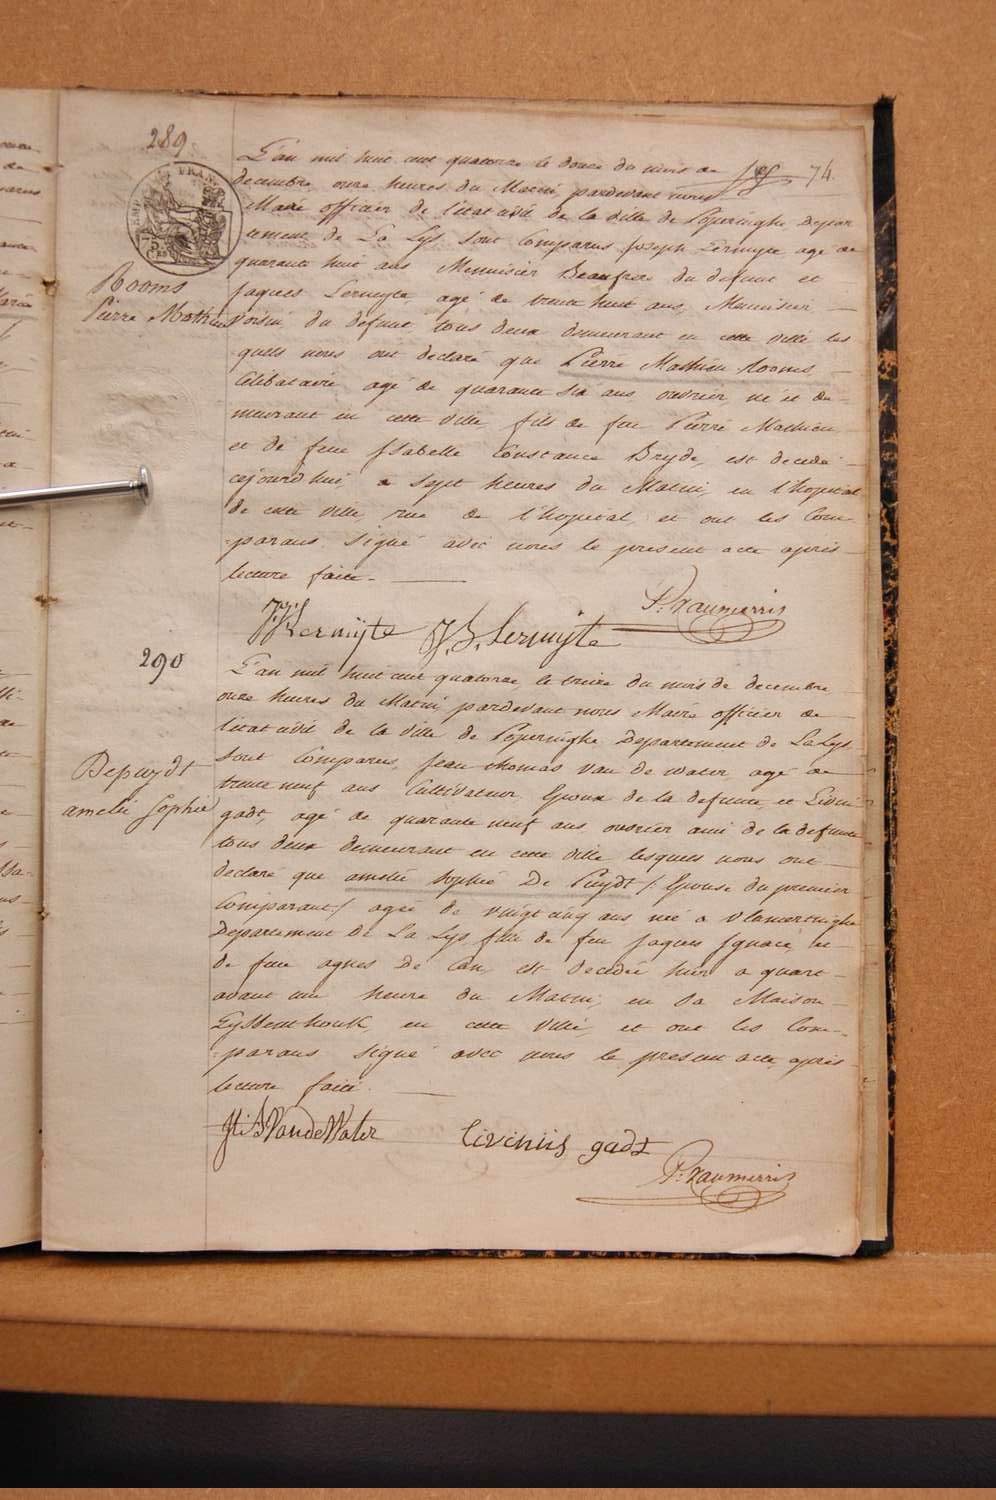 289
L'an mil huit cent quatorze le douze du mois de
74
decembre, onze heures du Matin pardevant nous
Maire officier de l'etat civil de la ville de Poperinghe Depar
tement de La Lys sont comparus joseph Lermyte agé de
quarante huit ans Menuisier Beaufrere du defunt et
jaques Lermyte, agé de trente huit ans, Menuisier
Rooms
Pierre Mathieu
voisin du defunt tous deux demeurant en cette ville les
quels nous ont declaré que Pierre Mathieu Rooms
Celibataire agé de quarante six ans ouvrier, né et de-
meurant en cette ville fils de feu Pierre Mathieu
et de feue jsabelle Constance Bryde, est decedé
cejourd'hui, a sept heures du Matin, en l'hopital
de cette ville, rue de l'hopital, et ont les Com
-parans signé avec nous le present acte après
lecture faite.
P. Vaumerris
J. Lermÿte J. S. Lermÿte
290
L'an mil huit cent quatorze, le treize du mois de decembre
onze heures du Matin, pardevant nous Maire officier de
l'etat civil de la ville de Poperinghe Departement de La Lys
sont Comparus, jean thomas Van de water, agé de
Depuydt
amelie Sophie
trente neuf ans Cultivateur Epoux de la defunte, et Livin
gadt, agé de quarante neuf ans ouvrier ami de la defunte
tous deux demeurant en cette ville lesquels nous ont
declaré que amelie sophie De Puydt /: Epouse du premier
Comparant :/ agée de vingt cinq ans née a Vlamertinghe
Departement de La Lys, fille de feu jaques jgnace, et
de feue agnes De Can, est decedée hier a quart
avant une heure du Matin, en sa Maison
Eyssenthouk, en cette Ville, et ont les Com-
-parans signé avec nous le present acte, après
lecture faite.
VandeWater
livinus gadt
P. Vaumerris